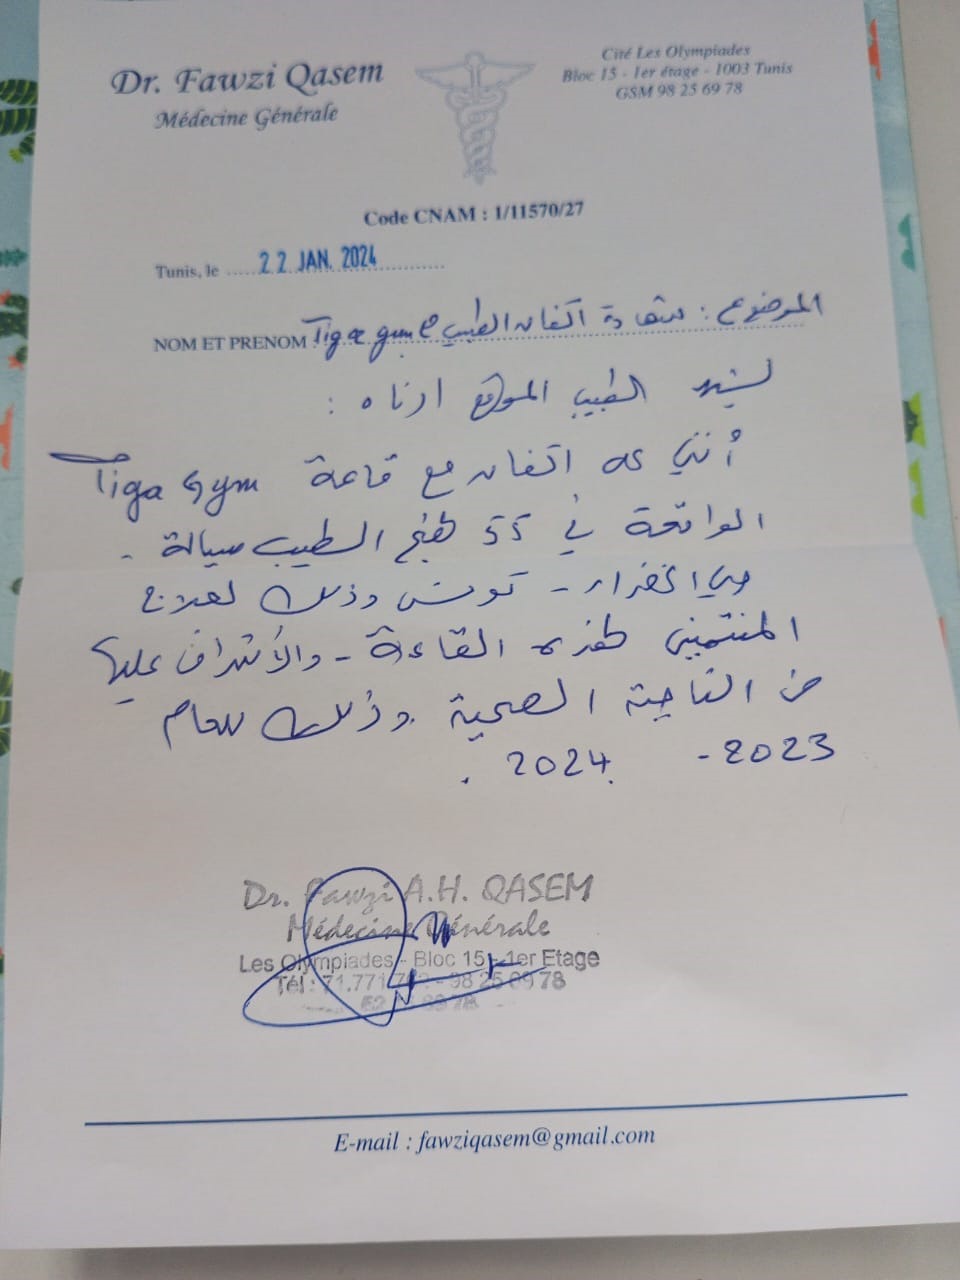 Dr. Fawzi Qasem
Médecine Générale
Cité Les Olympiades
Bloc 15 - 1er étage - 1003 Tunis
GSM 98 25 69 78
Code CNAM : 1/11570/27
Tunis, le ..... 22 JAN. 2024
NOM ET PRENOM
الموضوع : شهادة اتفاق الطبيب مع Tiga gym
يشهد الطبيب الموقع أدناه :
أنني على اتفاق مع قاعة Tiga Gym
الواقعة في 55 نهج الطيب سيالة -
حي الخضراء - تونس وذلك لعلاج
المنتمين لهذه القاعة - والأشراف عليها
من الناحية الصحية وذلك للعام
2023 - 2024 .
Dr. Fawzi A.H. QASEM
Médecine Générale
Les Olympiades - Bloc 15 - 1er Etage
Tél : 71.771 98 25 69 78
E-mail : fawziqasem@gmail.com